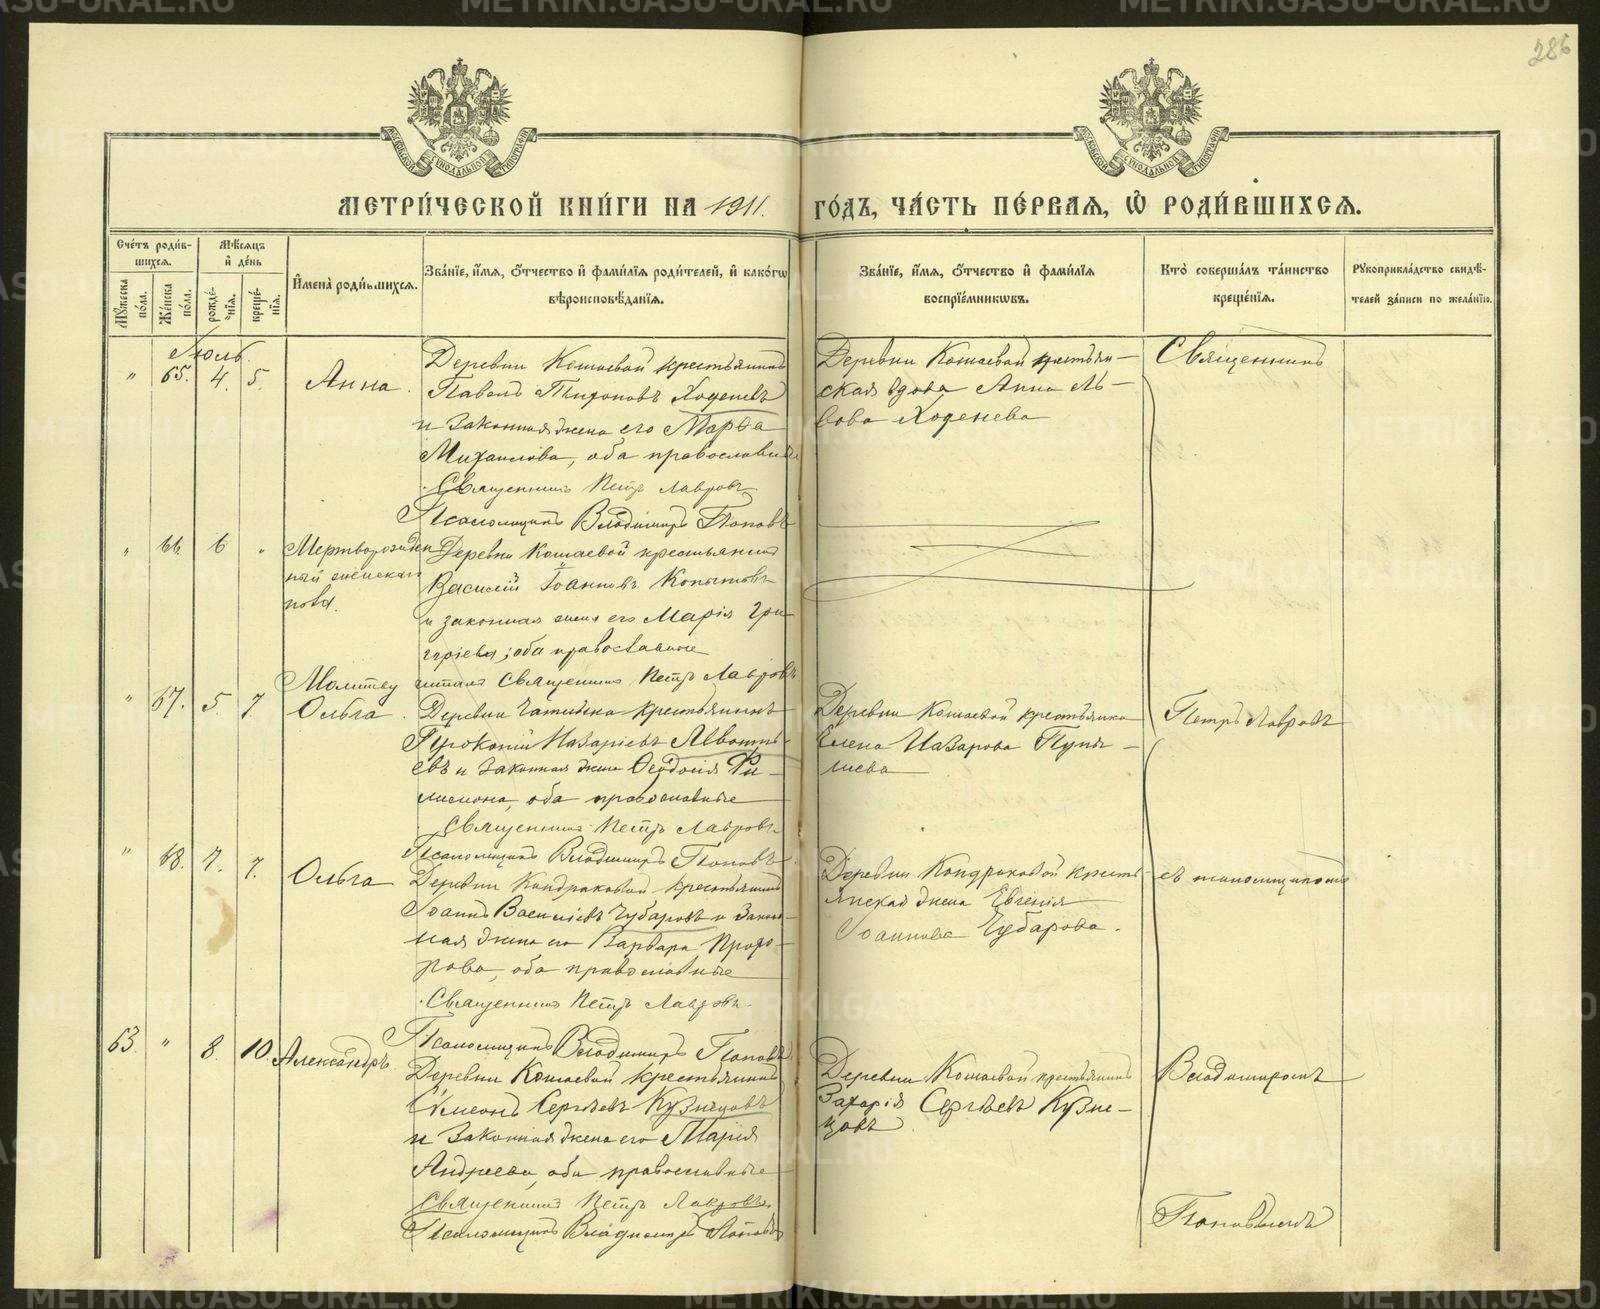 286
МОСКОВСКОЙ СѴНОДАЛЬНОЙ ТИПОГРАФІИ
МОСКОВСКОЙ СѴНОДАЛЬНОЙ ТИПОГРАФІИ
МЕТРИ́ЧЕСКОЙ КНИ́ГИ НА 1911. ГО́ДЪ, ЧА́СТЬ ПЕ́РВАѦ, Ѡ҆ РОДИ́ВШИХСѦ.
Сче́тъ роди́в-
шихсѧ.
Мꙋ́жеска по́ла.
Же́нска по́ла.
Мѣ́сѧцъ
и҆ де́нь
рожде́-нїѧ.
креще́-нїѧ.
И҆мена̀ роди́вшихсѧ.
Зва́нїе, и҆́мѧ, ѻ҆́тчество и҆ фами́лїѧ роди́телей, и҆ како́гѡ
вѣроисповѣ́данїѧ.
Зва́нїе, и҆́мѧ, ѻ҆́тчество и҆ фами́лїѧ
воспрїе́мникѡвъ.
Кто̀ соверша́лъ та́инство
креще́нїѧ.
Рꙋкоприкла́дство свидѣ́-
телей за́писи по жела́нїю.
Іюль.
" 65. 4. 5. Анна.
Деревни Кошаевой крестьянинъ
Павелъ
и законная жена его Марѳа
Михаилова, оба православные
Священникъ Петръ Лавровъ
Псаломщикъ Владимиръ Поповъ
Деревни Кошаевой крестьян-
ская вдова Анна Ль-
вова Ходенева
Священникъ
" 66. 6 " Мертворожден
ный женскаго
пола.
Деревни Кошаевой крестьянинъ
Василій Іоанновъ Копытовъ
и законная жена его Марія Гри-
горіева; оба православные
Молитву читалъ Священникъ Петръ Лавровъ
" 67. 5. 7. Ольга.
Деревни крестьянинъ
Прокопій Назаріевъ Леонть-
евъ и законная жена Ѳеодосія Фи-
лимонова, оба православные
Священникъ Петръ Лавровъ
Псаломщикъ Владимиръ Поповъ
Деревни Кошаевой крестьянка
Елена Назарова
Петръ Лавровъ
" 68. 7. 7. Ольга
Деревни Кондраковой крестьянинъ
Іоаннъ Василіевъ Чубаровъ и закон-
ная жена его Варвара Прохо-
рова, оба православные
Священникъ Петръ Лавровъ.
Псаломщикъ Владимиръ Поповъ
Деревни Кондраковой кресть-
янская жена Евгенія
Іоаннова Чубарова.
съ псаломщикомъ
63. " 8. 10. Александръ
Деревни Кошаевой крестьянинъ
Симеонъ Сергѣевъ Кузнецовъ
и законная жена его Марія
Андреева, оба православные
Священникъ Петръ Лавровъ.
Псаломщикъ Владимиръ Поповъ
Деревни Кошаевой крестьянинъ
Захарія Сергѣевъ Кузне-
цовъ.
Владимиромъ
Поповымъ